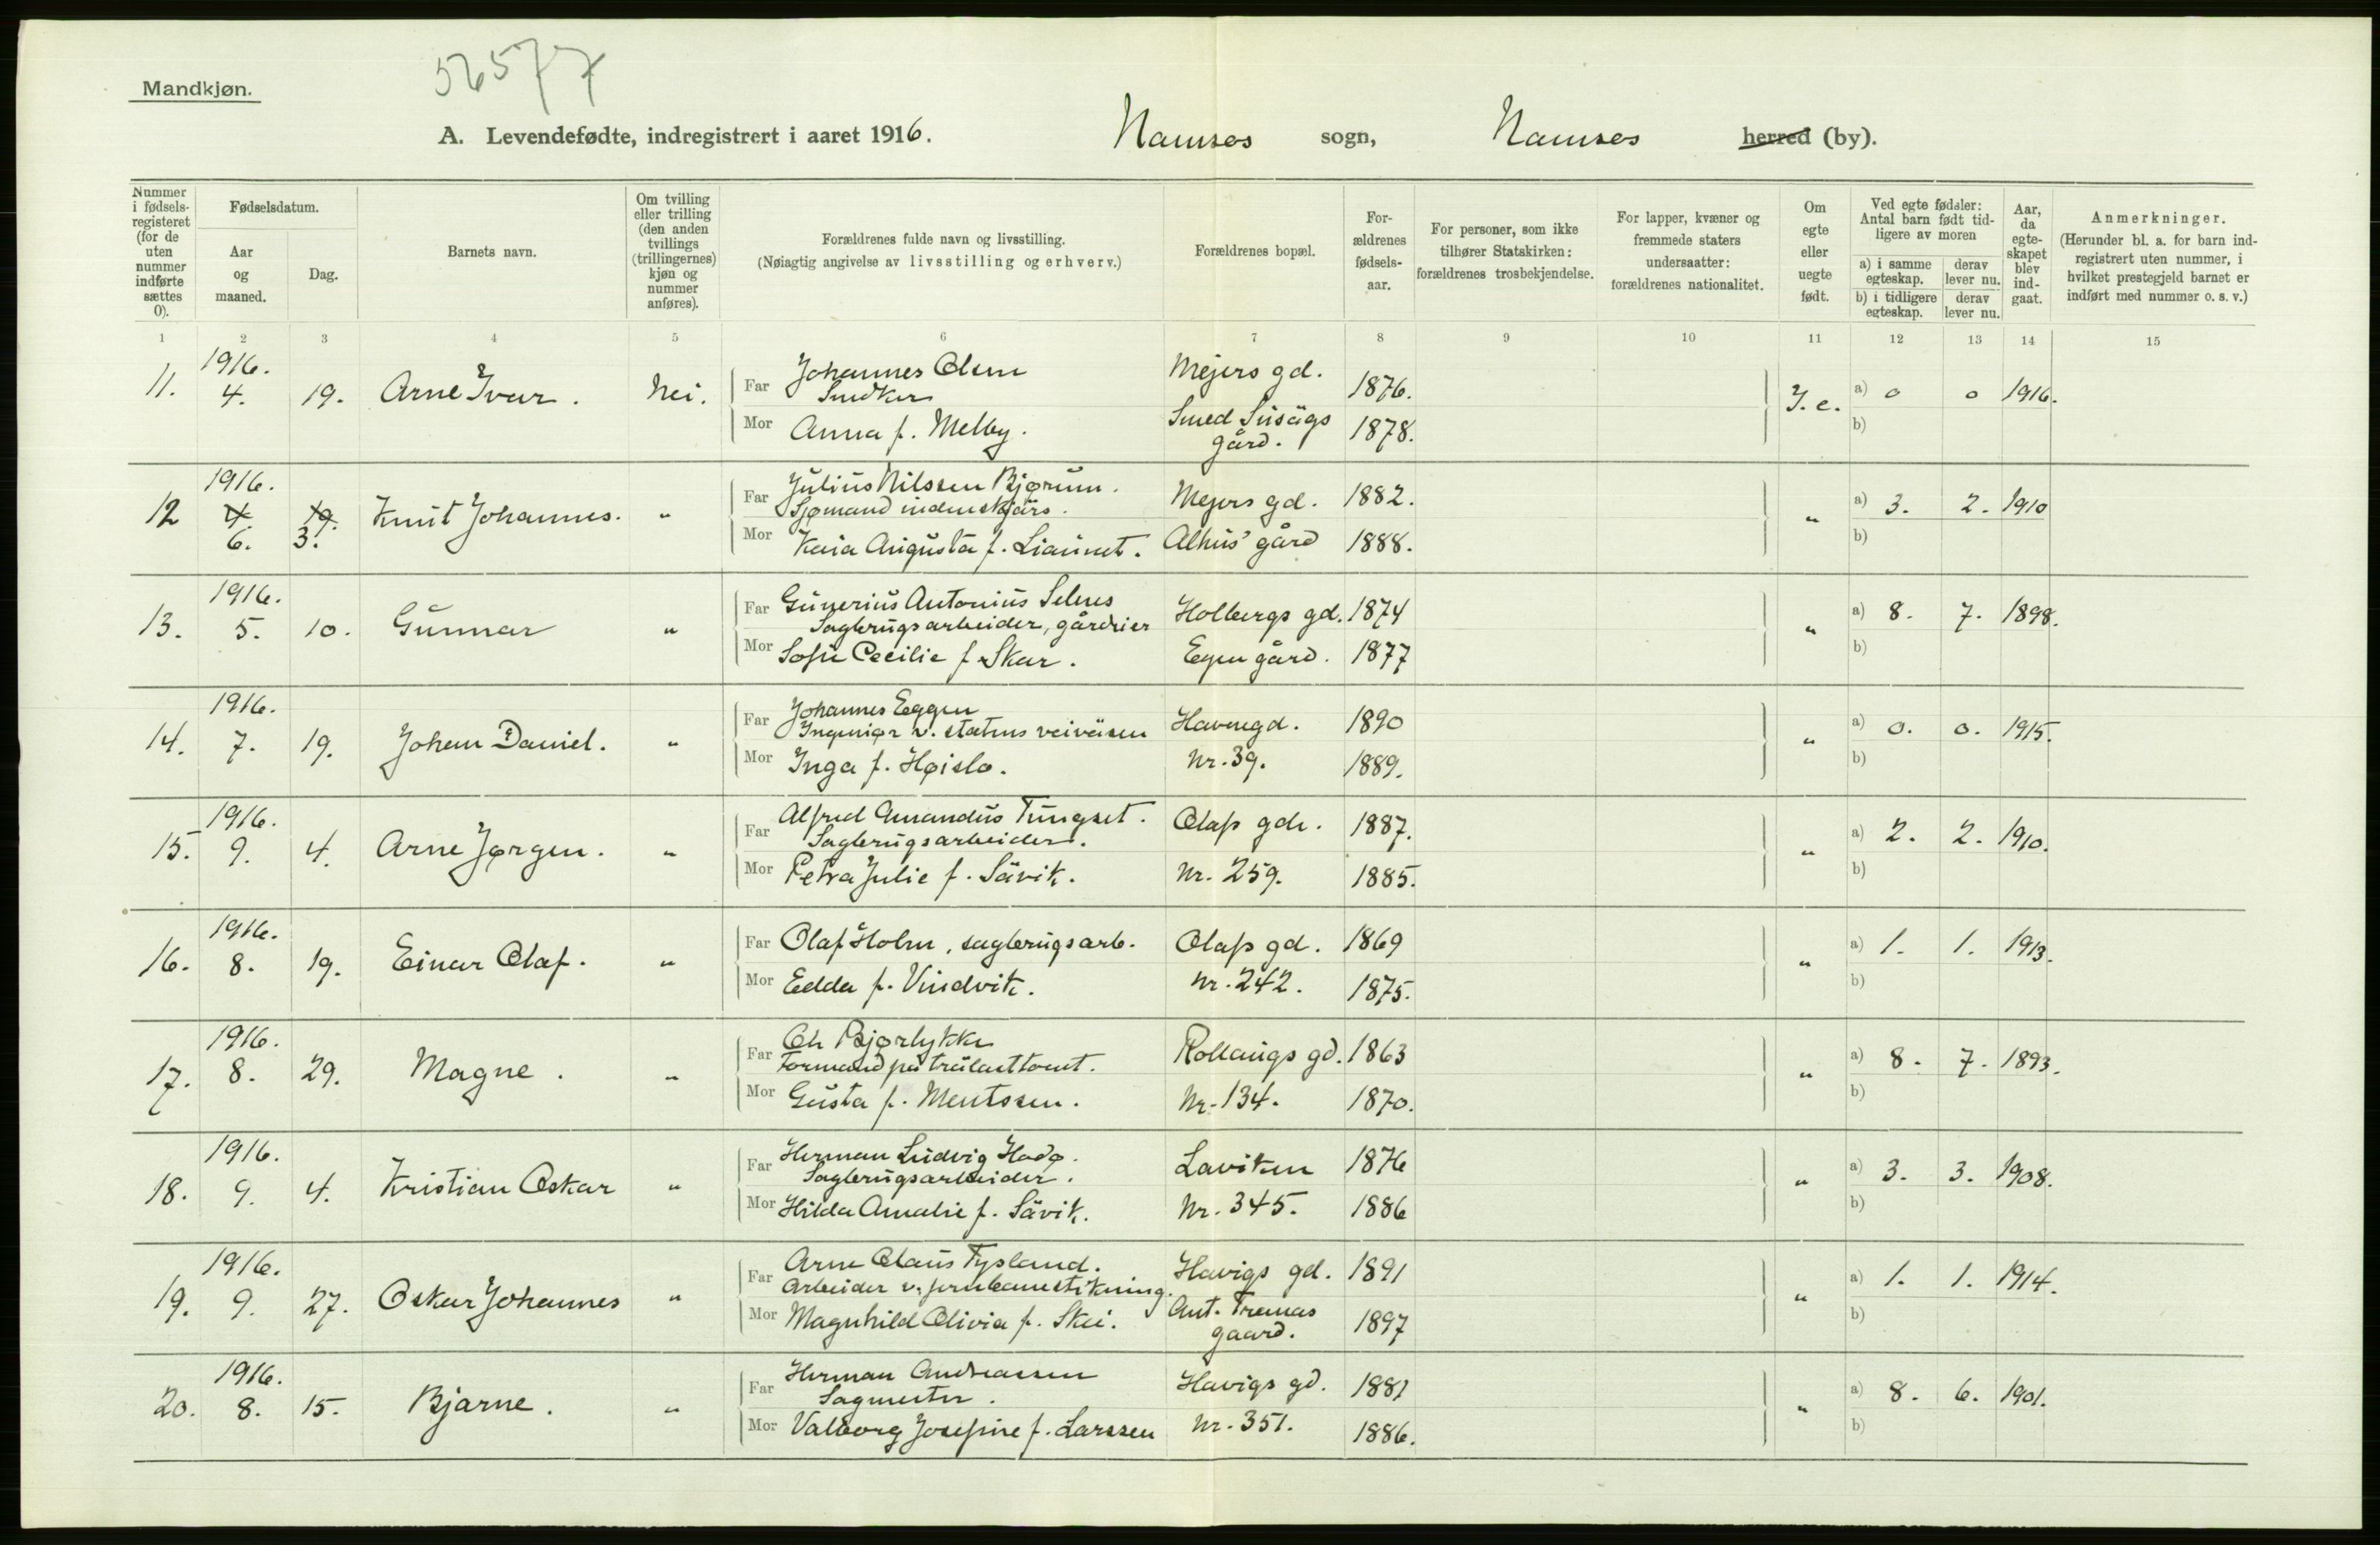 Mandkjøn.
56577
A. Levendefødte, indregistrert i aaret 1916. Namsos sogn, Namsos herred (by).
Nummer i fødsels-registeret (for de uten nummer indførte sættes 0).
Fødselsdatum.
Aar og maaned.
Dag.
Barnets navn.
Om tvilling eller trilling (den anden tvillings (trillingernes) kjøn og nummer anføres).
Forældrenes fulde navn og livsstilling.
(Nøiagtig angivelse av livsstilling og erhverv.)
Forældrenes bopæl.
For-ældrenes fødsels-aar.
For personer, som ikke tilhører Statskirken: forældrenes trosbekjendelse.
For lapper, kvæner og fremmede staters undersaatter: forældrenes nationalitet.
Om egte eller uegte født.
Ved egte fødsler: Antal barn født tid-ligere av moren
a) i samme egteskap.
derav lever nu.
b) i tidligere egteskap.
derav lever nu.
Aar, da egte-skapet blev ind-gaat.
Anmerkninger.
(Herunder bl. a. for barn ind-registrert uten nummer, i hvilket prestegjeld barnet er indført med nummer o. s. v.)
1 2 3 4 5 6 7 8 9 10 11 12 13 14 15
1916.
11. 4. 19. Arne Ivar. Nei. Far Johannes Olsen Mejers gd. 1876. J. e. a) 0 0 1916.
Snedker
Mor Anna f. Melby. Smed gård. 1878. b)
1916.
12 4. 19. Knut Johannes. " Far Julius Nilssen Bjørum. Mejers gd. 1882. " a) 3. 2. 1910
6. 3. Sjømand indenskjärs.
Mor Kaia Augusta f. Liaunet. Alhus' gård 1888. b)
1916.
13. 5. 10. Gunnar " Far Gunerius Antonius Selnes Holbergs gd. 1874 " a) 8. 7. 1898.
Sagbrugsarbeider, gårdeier
Mor Sofie Cecilie f. Skar. Egen gård. 1877 b)
1916.
14. 7. 19. Johan Daniel. " Far Johannes Eggen Havnegd. 1890 " a) 0. 0. 1915.
Ingeniør v. statens veivæsen
Mor Inga f. Høislo. Nr. 39. 1889. b)
1916.
15. 9. 4. Arne Jørgen. " Far Alfred Amandus Tungset. Olafs gde. 1887. " a) 2. 2. 1910.
Sagbrugsarbeider.
Mor Petra Julie f. Såvik. Nr. 259. 1885. b)
1916.
16. 8. 19. Einar Olaf. " Far Olaf Holm, sagbrugsarb. Olafs gd. 1869 " a) 1. 1. 1913.
Mor Edda f. Vindvik. Nr. 242. 1875. b)
1916.
17. 8. 29. Magne. " Far Ole Bjørlykke Rollaugs gd. 1863 " a) 8. 7. 1893.
Formand på trælasttomt.
Mor Gusta f. Mentssen. Nr. 134. 1870. b)
1916.
18. 9. 4. Kristian Oskar " Far Herman Ludvig Hodø. Laviken 1876 " a) 3. 3. 1908.
Sagbrugsarbeider.
Mor Hilda Amalie f. Såvik. Nr. 345. 1886 b)
1916.
19. 9. 27. Oskar Johannes " Far Arne Olaus Tysland. Havigs gd. 1891 " a) 1. 1. 1914.
Arbeider v. jernbanestikning.
Mor Magnhild Olivia f. Skei. Ant. Tranas gaard. 1897 b)
1916.
20. 8. 15. Bjarne. " Far Herman Andreassen Havigs gd. 1881 " a) 8. 6. 1901.
Sagmester.
Mor Valborg Josefine f. Larssen Nr. 351. 1886. b)